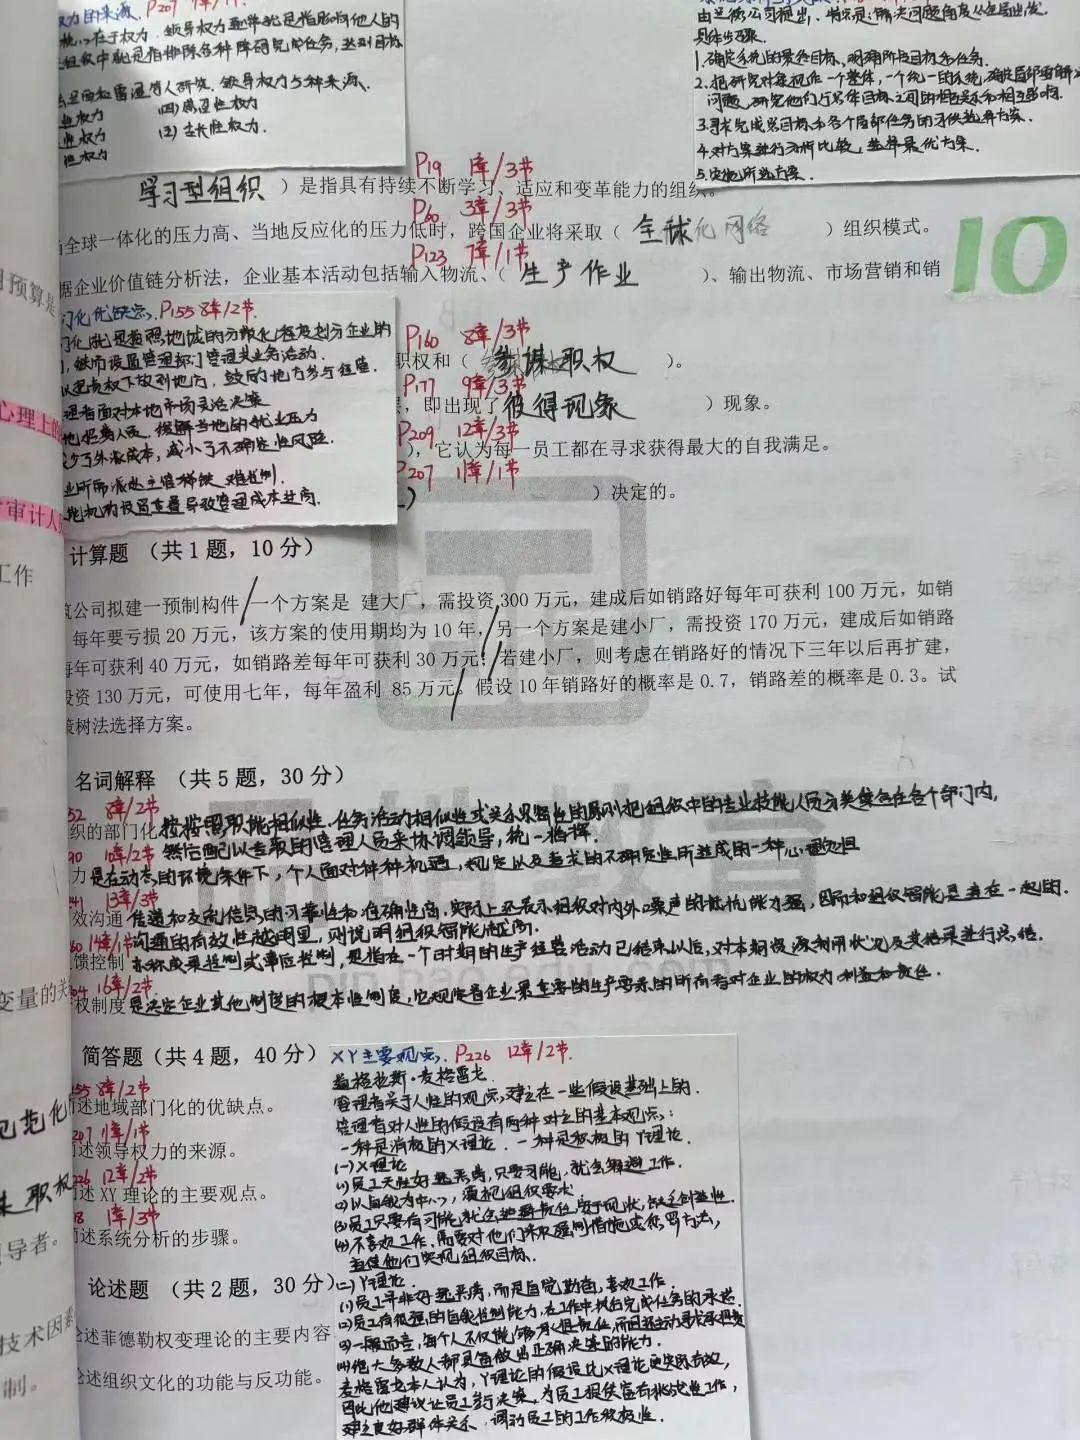 权力的来源. P207
在于权力. 领导权力通常就是指影响他人的
组织中就是指排除各种障碍完成任务,达到目标
法兰西和雷温等人研究. 领导权力有5种来源.
性权力 (四)感召性权力
性权力 (五)专长性权力.
性权力
由兰德公司提出. 特点是:解决问题角度从全局出发.
具体步骤.
1.确定系统的最终目标,明确阶段目标和任务.
2.把研究对象视作一个整体,一个统一的系统,确定局部要解决
问题,研究他们与总体目标之间的相互关系和相互影响.
3.寻求完成总目标和各个局部任务的可供选择方案.
4.对方案进行分析比较,选择最优方案.
5.实施所选方案.
P19 1章/3节
学习型组织 )是指具有持续不断学习、适应和变革能力的组织。
P60 3章/3节
全球一体化的压力高、当地反应化的压力低时,跨国企业将采取( 全球化网络 )组织模式。
P123 7章/1节
据企业价值链分析法,企业基本活动包括输入物流、( 生产作业 )、输出物流、市场营销和销
10
门化优缺点. P155 8章/2节.
门化就是按照地域的分散化程度划分企业的
,继而设置管理部门管理其业务活动.
以把责权下放到地方,鼓励地方参与经营.
理者面对本地市场灵活决策
地招募人员,缓解当地的就业压力
减少了外派成本,减小了不确定性风险.
业所需派赴主管稀缺,难控制.
能机构设置重叠导致管理成本过高.
P160 8章/3节
职权和( 参谋职权 )。
P177 9章/3节
,即出现了 彼得现象 )现象。
P209 12章/3节
),它认为每一员工都在寻求获得最大的自我满足。
P207 11章/1节
)决定的。
计算题 (共1题,10分)
公司拟建一预制构件 一个方案是 建大厂,需投资300万元,建成后如销路好每年可获利100万元,如销
每年要亏损20万元,该方案的使用期均为10年,另一个方案是建小厂,需投资170万元,建成后如销路
每年可获利40万元,如销路差每年可获利30万元;若建小厂,则考虑在销路好的情况下三年以后再扩建,
投资130万元,可使用七年,每年盈利 85万元。假设10年销路好的概率是0.7,销路差的概率是0.3。试
策树法选择方案。
名词解释 (共5题,30分)
52 8章/2节
织的部门化 按按照职能相似性、任务活动相似性或关系紧密性的原则把组织中的专业技能人员分类集合在各个部门内,
90 10章/2节 然后配以专职的管理人员来协调领导,统一指挥.
力 是在动态的环境条件下,个人面对种种机遇,规定以及追求的不确定性所造成的一种心理负担
241 13章/3节
效沟通 传递和交流信息的可靠性和准确性高,实际上还表示组织对内外噪声的抵抗能力强,因而和组织智能是连在一起的.
14章/1节 沟通的有效性越明显,则说明组织智能越高.
馈控制 亦称成果控制或事后控制,是指在一个时期的生产经营活动已结束以后,对本期资源利用状况及其结果进行总结.
04 16章/2节
权制度 是决定企业其他制度的根本性制度,它规定着企业最重要的生产要素的所有者对企业的权力、利益和责任.
简答题(共4题,40分)
55 8章/2节
述地域部门化的优缺点。
207 11章/1节
述领导权力的来源。
226 12章/2节
述XY理论的主要观点。
1章/3节
述系统分析的步骤。
论述题 (共2题,30分)
论述菲德勒权变理论的主要内容
论述组织文化的功能与反功能。
XY主要观点. P226 12章/2节.
道格拉斯·麦格雷戈.
管理者关于人性的观点,建立在一些假设基础上的.
管理者对人性的假设有两种对立的基本观点:
一种是消极的X理论. 一种是积极的Y理论.
(一)X理论
(1)员工天性好逸恶劳,只要可能,就会躲避工作.
(2)以自我为中心,漠视组织要求
(3)员工只要有可能就会逃避责任,安于现状,缺乏创造性.
(4)不喜欢工作,需要对他们采取强制措施或惩罚办法,
迫使他们实现组织目标.
(二)Y理论.
(1)员工并非好逸恶劳,而是自觉勤奋,喜欢工作.
(2)员工有很强的自我控制能力,在工作中执行完成任务的承诺.
(3)一般而言,每个人不仅能够承担责任,而且还主动寻求承担责任
(4)绝大多数人都具备做出正确决策的能力.
麦格雷戈本人认为,Y理论的假设比X理论更实际有效,
因此他建议让员工参与决策,为员工提供富有挑战性工作,
建立良好群体关系,调动员工的工作积极性.
预算是
心理上的
审计人员
工作
变量的关
规范化
职权
导者。
技术因素
制。